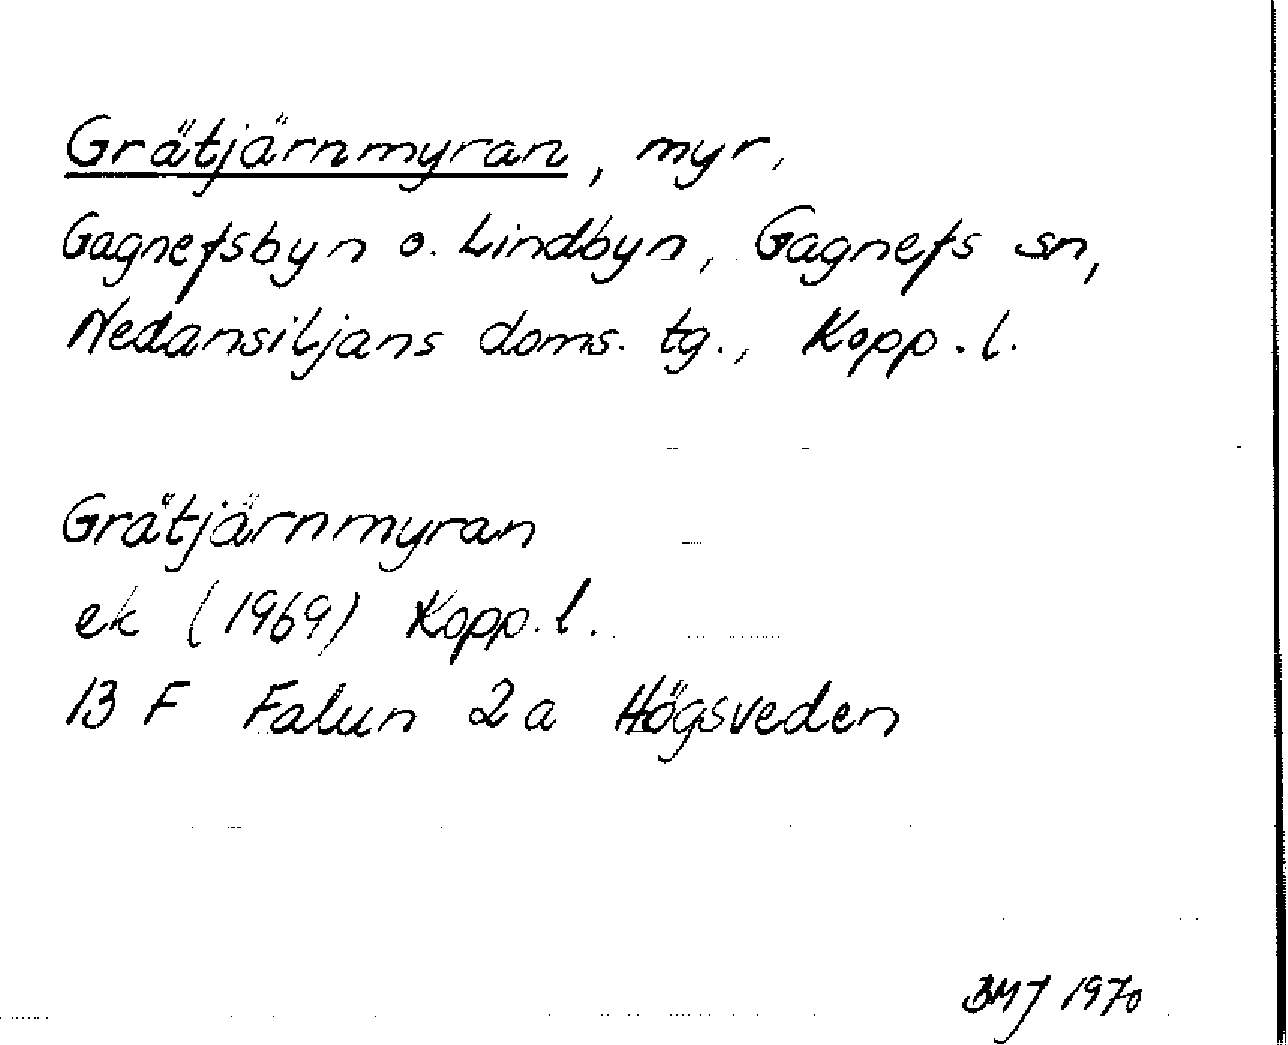 Grätjärnmyran, myr,
Gagnefsbyn o. Lindbyn, Gagnefs sn,
Nedansiljans doms. tg., Kopp. l.
Gråtjärnmyran
ek (1969) Kopp. l.
13 F Falun 2a Högsveden
BMJ 1970